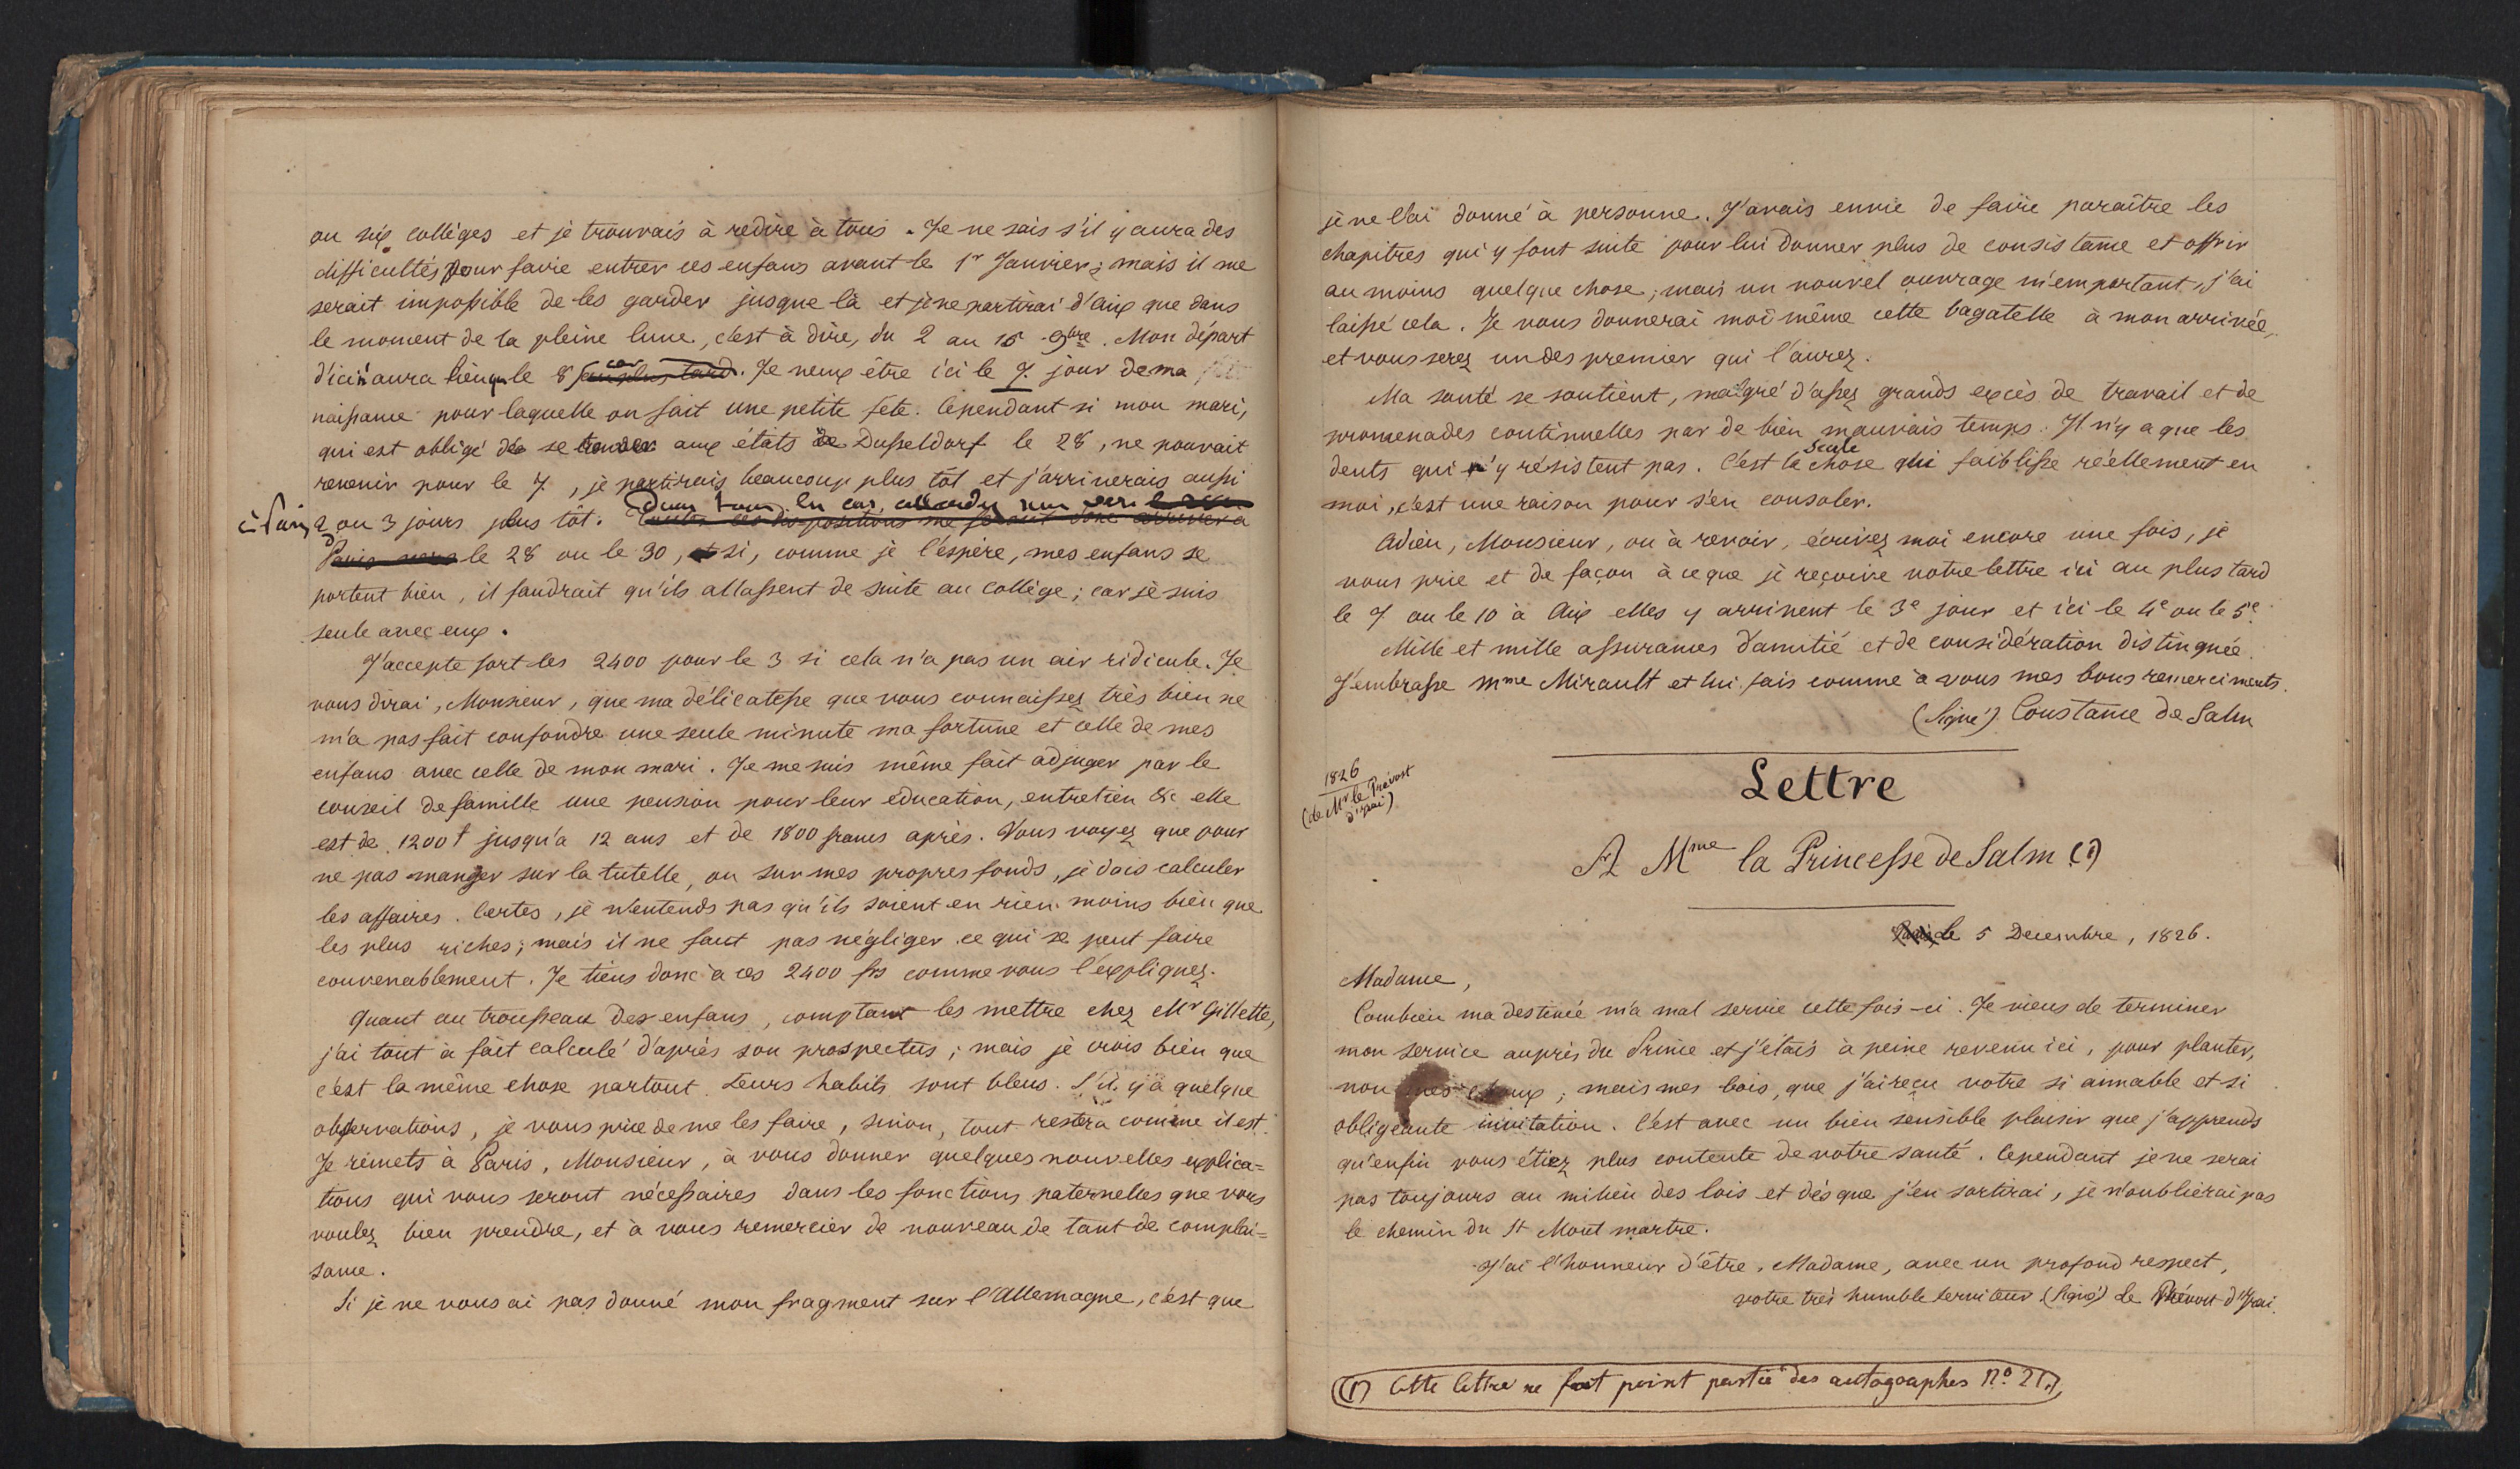 ou six collèges et je trouvais à redire à tous. Je ne sais s'il y aura des
difficultés pour faire entrer ces enfans avant le 1r Janvier; mais il me
serait impossible de les garder jusque là et je ne partirai d'Aix que dans
le moment de la pleine lune, c'est à dire, du 2 au 15 9bre. Mon départ
d'ici n'aura lieu que le 8 car au plus tard. Je veux être ici le 7. jour de ma
naissance pour laquelle on fait une petite fête. Cependant si mon mari,
qui est obligé de se rendre aux états de Dusseldorf le 28, ne pouvait
revenir pour le 7, je partirais beaucoup plus tôt et j'arriverais aussi
à Paris 2 ou 3 jours plus tôt. Dans tous les cas, attendez moi vers
Toutes ces dispositions me feront donc arriver à
Paris vers le 28 ou le 30, et si, comme je l'espère, mes enfans se
portent bien, il faudrait qu'ils allassent de suite au collège; car je suis
seule avec eux.
J'accepte fort les 2400 pour le 3 si cela n'a pas un air ridicule. Je
vous dirai, Monsieur, que ma délicatesse que vous connaissez très bien ne
m'a pas fait confondre une seule minute ma fortune et celle de mes
enfans avec celle de mon mari. Je me suis même fait adjuger par le
conseil de famille une pension pour leur education, entretien &c elle
est de 1200f jusqu'a 12 ans et de 1800 francs après. Vous voyez que pour
ne pas manger sur la tutelle, ou sur mes propres fonds, je dois calculer
les affaires. Certes, je n'entends pas qu'ils soient en rien moins bien que
les plus riches; mais il ne faut pas négliger ce qui se peut faire
convenablement. Je tiens donc à ces 2400 frs comme vous l'expliquez.
Quant au trousseau des enfans, comptant les mettre chez Mr Gillette,
j'ai tout à fait calculé d'après son prospectus; mais je crois bien que
c'est la même chose partout. Leurs habits sont bleus. S'il y a quelque
observations, je vous prie de me les faire, sinon, tout restera comme il est.
Je remets à Paris, Monsieur, à vous donner quelques nouvelles explica=
tions qui vous seront nécessaires dans les fonctions paternelles que vous
voulez bien prendre, et à vous remercier de nouveau de tant de complai=
sance.
Si je ne vous ai pas donné mon fragment sur l'Allemagne, c'est que
je ne l'ai donné à personne. J'avais envie de faire paraître les
chapitres qui y font suite pour lui donner plus de consistance et offrir
au moins quelque chose; mais un nouvel ouvrage m'emportant, j'ai
laissé cela. Je vous donnerai moi même cette bagatelle à mon arrivée,
et vous serez un des premier qui l'aurez.
Ma santé se soutient, malgré d'assez grands excès de travail et de
promenades continuelles par de bien mauvais temps. Il n'y a que les
dents qui n'y résistent pas. C'est la seule chose qui faiblisse réellement en
moi, c'est une raison pour s'en consoler.
Adieu, Monsieur, ou à revoir, écrivez moi encore une fois, je
vous prie et de façon à ce que je reçoive votre lettre ici au plus tard
le 7 ou le 10 à Aix elles y arrivent le 3e jour et ici le 4e ou le 5e.
Mille et mille assurances d'amitié et de considération distinguée.
J'embrasse Mme Mirault et lui fais comme à vous mes bons remerciments.
(Signé) Constance de Salm
1826
(de Mr le Prévost
d'Irai)
Lettre
A Mme la Princesse de Salm (1)
Paris le 5 Decembre, 1826.
Madame,
Combien ma destinée m'a mal servie cette fois-ci. Je viens de terminer
mon service auprès du Prince et j'étais à peine revenu ici, pour planter,
non mes choux; mais mes bois, que j'ai reçu votre si aimable et si
obligeante invitation. C'est avec un bien sensible plaisir que j'apprends
qu'enfin vous étiez plus contente de votre santé. Cependant je ne serai
pas toujours au milieu des bois et dès que j'en sortirai, je n'oublierai pas
le chemin du St Mont martre.
J'ai l'honneur d'être, Madame, avec un profond respect,
votre très humble serviteur (Signé) le Prévost d'Irai.
(1) Cette lettre ne fait point partie des autographes No 21.